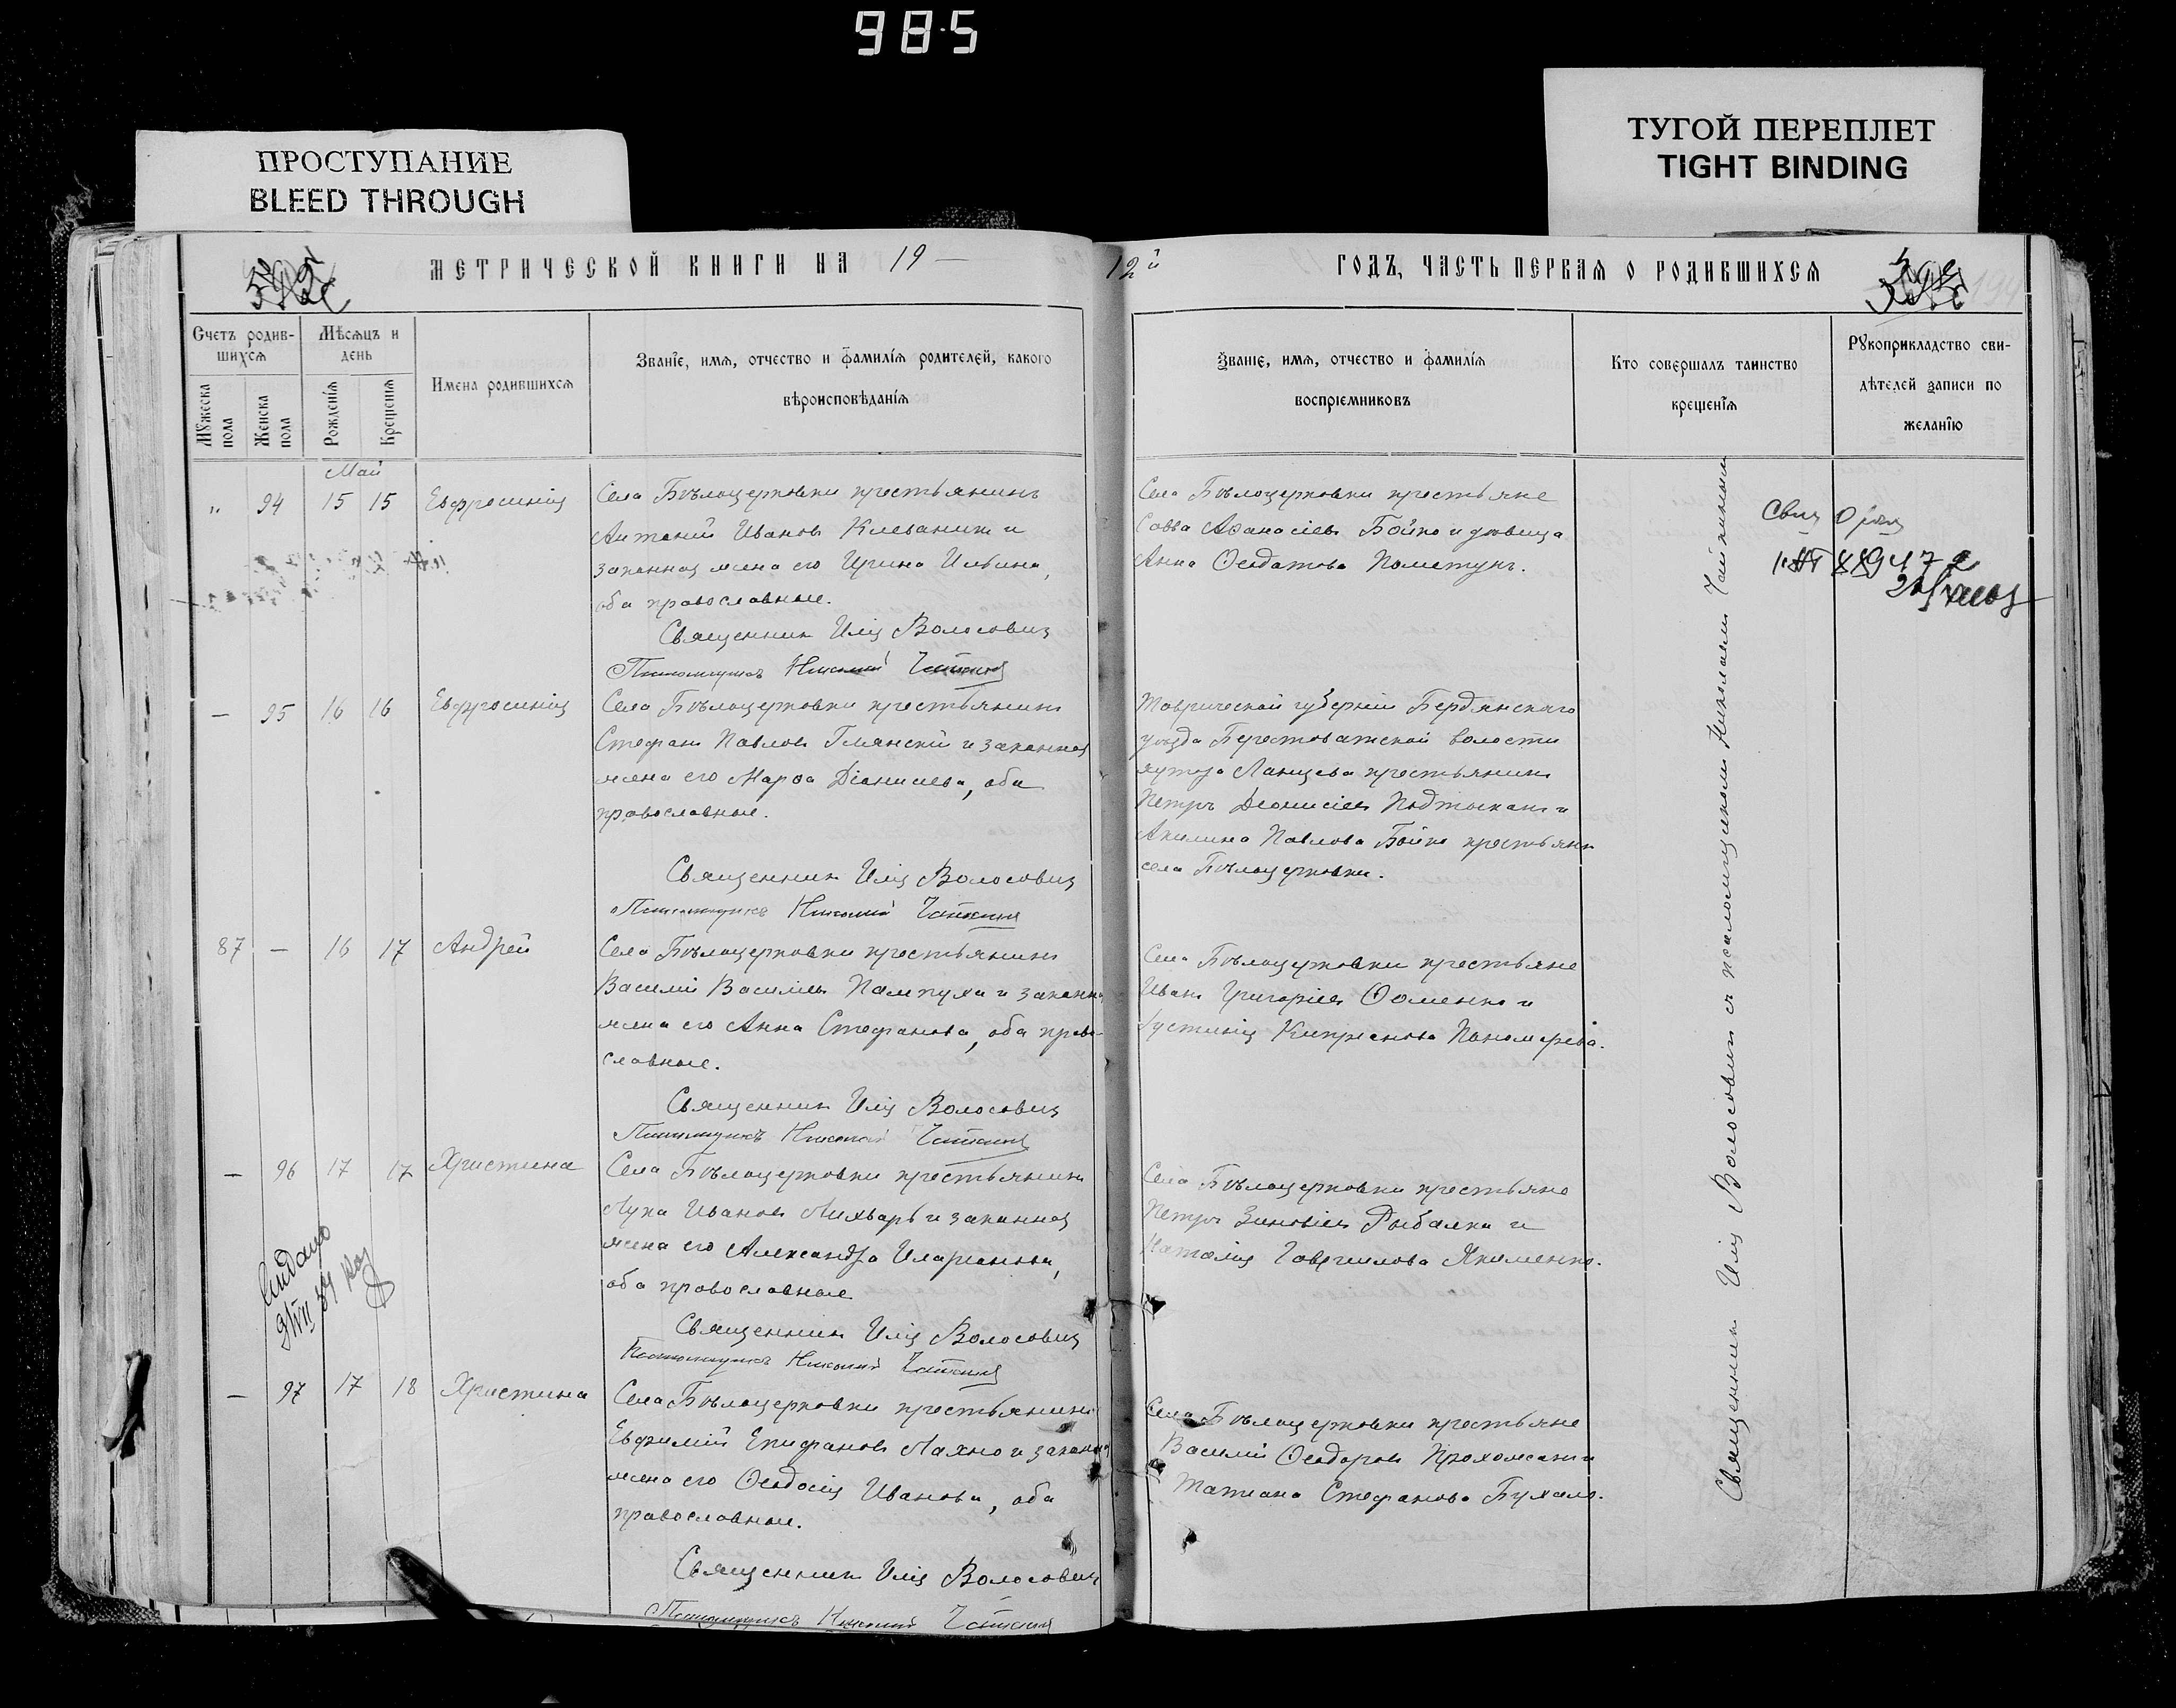 985
ПРОСТУПАНИЕ
BLEED THROUGH
ТУГОЙ ПЕРЕПЛЕТ
TIGHT BINDING
МЕТРИЧЕСКОЙ КНИГИ НА 19—
12й ГОДЪ, ЧАСТЬ ПЕРВАЯ О РОДИВШИХСЯ
Счетъ родив-
шихся
Мужеска
пола
Женска
пола
Мѣсяцъ и
день
Рожденія
Крещенія
Имена родившихся
Званіе, имя, отчество и фамилія родителей, какого
вѣроисповѣданія
Званіе, имя, отчество и фамилія
воспріемниковъ
Кто совершалъ таинство
крещенія
Рукоприкладство сви-
дѣтелей записи по
желанію
Май
„ 94 15 15 Евфросинія
Села Бѣлоцерковки крестьянинъ
Антоній Ивановъ Клеваникъ и
законная жена его Ирина Ильина,
оба православные.
Священникъ Илія Волосовичъ
Псаломщикъ Николай
Села Бѣлоцерковки крестьяне
Савва Аѳанасіевъ Бойко и девица
Анна Ѳеодотова Пометунъ.
— 95 16 16 Евфросинія
Села Бѣлоцерковки крестьянинъ
Стефанъ Павловъ Глянскій и законная
жена его Марѳа Діонисіева, оба
православные.
Священникъ Илія Волосовичъ
Псаломщикъ Николай
Таврической губерніи Бердянскаго
уѣзда Берестоватской волости
хутора Ланцева крестьянинъ
Петръ Діонисіевъ и
Акилина Павлова Бойко крестьяне
села Бѣлоцерковки.
87 — 16 17 Андрей
Села Бѣлоцерковки крестьянинъ
Василій Василіевъ Пампуха и законная
жена его Анна Стефанова, оба право-
славные.
Священникъ Илія Волосовичъ
Псаломщикъ Николай
Села Бѣлоцерковки крестьяне
Иванъ Григоріевъ Ѳоменко и
Іустинія Кипріанова Пономарева.
— 96 17 17 Христина
Села Бѣлоцерковки крестьянинъ
Лука Ивановъ Лихварь и законная
жена его Александра Иларіонова,
оба православные
Священникъ Илія Волосовичъ
Псаломщикъ Николай
Села Бѣлоцерковки крестьяне
Петръ Зиновіевъ Рыбалка и
Наталія Гавриилова Якименко.
— 97 17 18 Христина
Села Бѣлоцерковки крестьянинъ
Евфимій Епифановъ Лахно и законная
жена его Ѳеодосія Иванова, оба
православные.
Священникъ Илія Волосовичъ
Псаломщикъ Николай
Села Бѣлоцерковки крестьяне
Василій Ѳеодоровъ и
Татіана Стефанова Бухало.
Священникъ Илія Волосовичъ съ псаломщикомъ Николаемъ